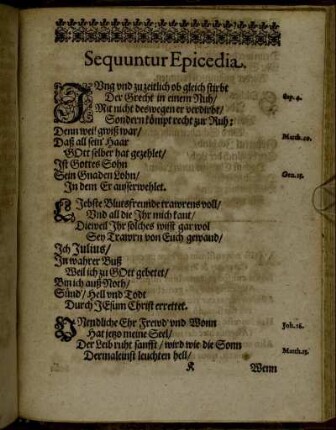 Sequuntur Epicedia.
JUng vnd zu zeitlich ob gleich stirbt
Der Grecht in einem Nuh/
Mit nicht deswegen er verdirbt/
Sondern kömpt recht zur Ruh:
Denn weil gwiß war/
Daß all sein Haar
GOtt selber hat gezehlet/
Ist Gottes Sohn
Sein Gnaden Lohn/
In dem Er ausserwehlet.
LIebste Blutsfreunde trawrens voll/
Vnd all die Ihr mich kant/
Dieweil Ihr solches wisst gar wol
Sey Trawrn von Euch gewand/
Ich Julius/
In wahrer Buß
Weil ich zu GOtt gebetet/
Bin ich auß Noth/
Sünd/ Hell vnd Todt
Durch JEsum Christ errettet.
VNendliche Ehr Frewd vnd Wonn
Hat jetzo meine Seel/
Der Leib ruht sanfft/ wird wie die Sonn
Dermaleinst leuchten hell/
K Wenn
Sap. 4.
Matth. 10.
Gen. 15.
Joh. 16.
Matth. 13.